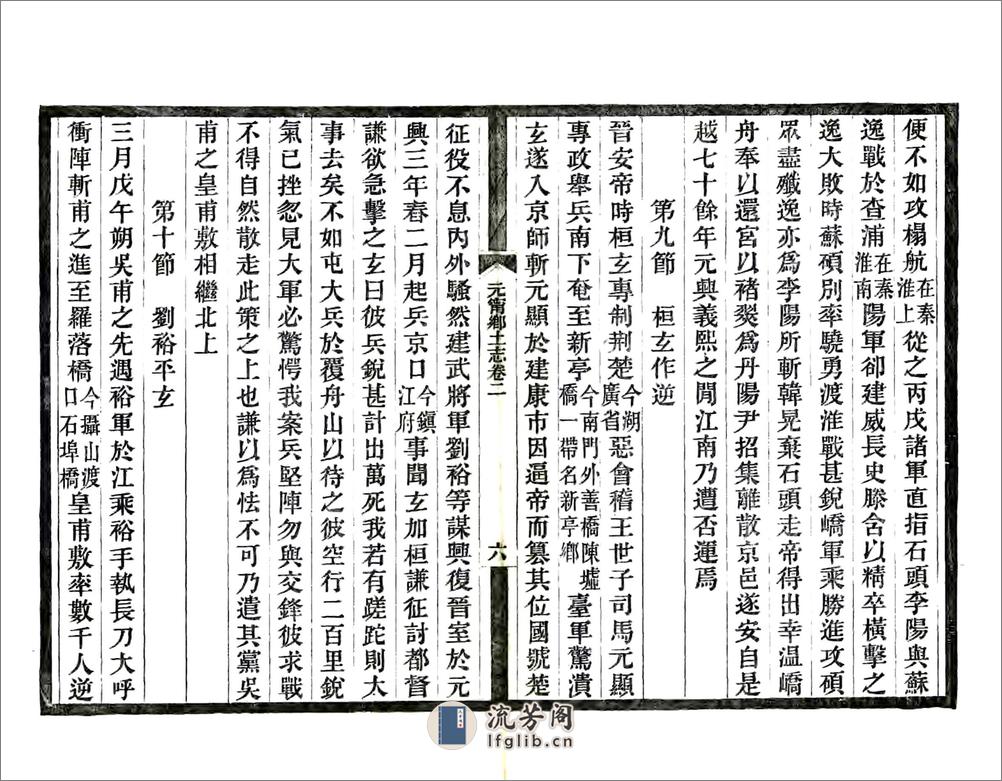 便不如攻榻航在秦淮上從之丙戌諸軍直指石頭李陽與蘇
逸戰於查浦在秦淮南陽軍却建威長史滕含以精卒橫擊之
逸大敗時蘇碩別率驍勇渡淮戰甚銳嶠軍乘勝進攻碩
眾盡殲逸亦爲李陽所斬韓晃棄石頭走帝得出幸溫嶠
舟奉以還宮以褚翜爲丹陽尹招集離散京邑遂安自是
越七十餘年元興義熙之閒江南乃遭否運焉
第九節 桓玄作逆
晉安帝時桓玄專制荆楚今湖廣省惡會稽王世子司馬元顯
專政舉兵南下奄至新亭今南門外善橋陳墟橋一帶名新亭鄉臺軍驚潰
玄遂入京師斬元顯於建康市因逼帝而簒其位國號楚
元甯鄉土志卷二 六
征役不息內外騷然建武將軍劉裕等謀興復晉室於元
興三年春二月起兵京口今鎭江府事聞玄加桓謙征討都督
謙欲急擊之玄曰彼兵銳甚計出萬死我若有蹉跎則大
事去矣不如屯大兵於覆舟山以待之彼空行二百里銳
氣已挫忽見大軍必驚愕我案兵堅陣勿與交鋒彼求戰
不得自然散走此策之上也謙以爲怯不可乃遣其黨吳
甫之皇甫敷相繼北上
第十節 劉裕平玄
三月戊午朔吳甫之先遇裕軍於江乘裕手執長刀大呼
衝陣斬甫之進至羅落橋今攝山渡口石埠橋皇甫敷率數千人逆
流芳阁
lfglib.cn